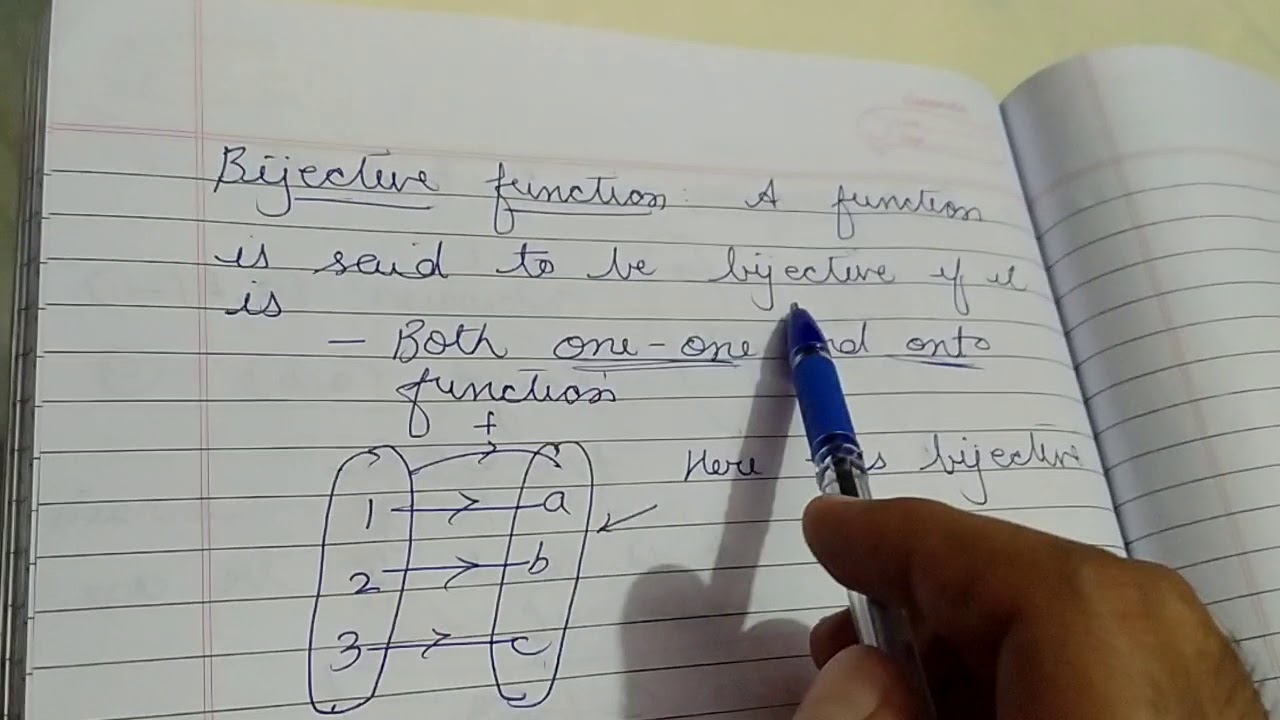 Bijective function: A function
is said to be bijective if it
is
- Both one-one and onto
function
f
Here is bijective
1 a
2 b
3 c